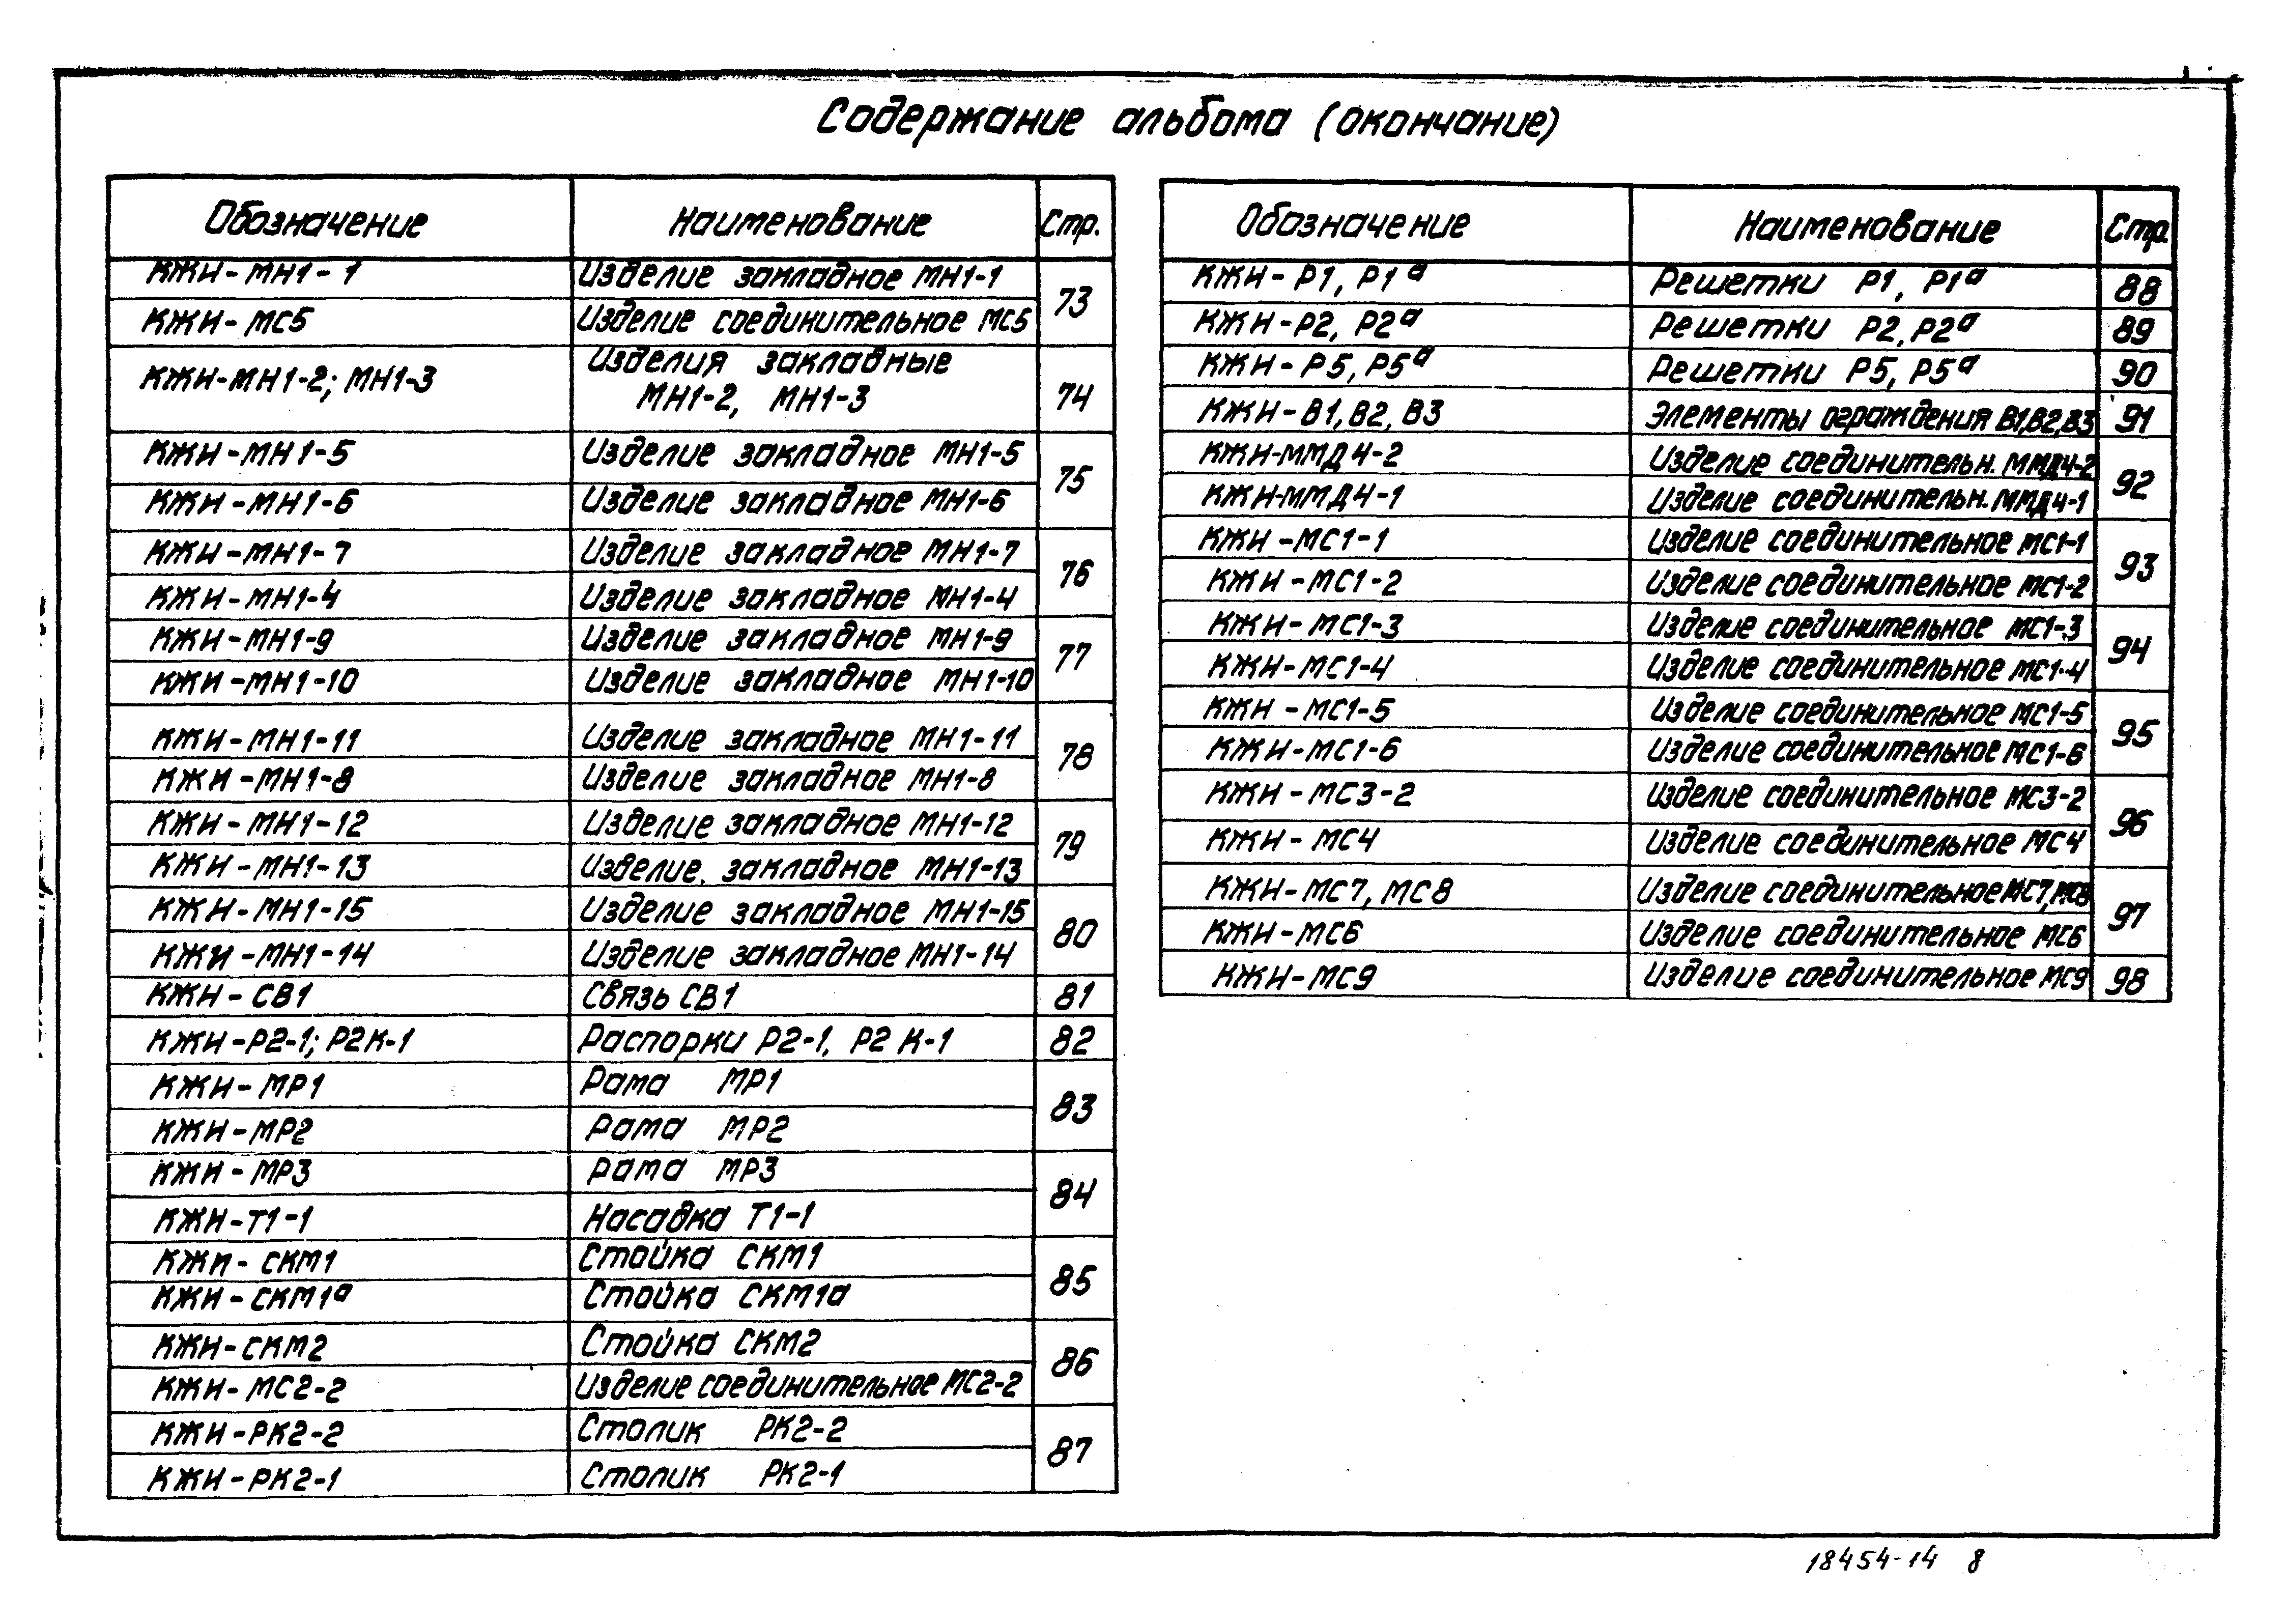 Содержание альбома (окончание)
Обозначение Наименование Стр.
КЖИ-МН1-1 Изделие закладное МН1-1 73
КЖИ-МС5 Изделие соединительное МС5
КЖИ-МН1-2; МН1-3 Изделия закладные
МН1-2, МН1-3 74
КЖИ-МН1-5 Изделие закладное МН1-5 75
КЖИ-МН1-6 Изделие закладное МН1-6
КЖИ-МН1-7 Изделие закладное МН1-7 76
КЖИ-МН1-4 Изделие закладное МН1-4
КЖИ-МН1-9 Изделие закладное МН1-9 77
КЖИ-МН1-10 Изделие закладное МН1-10
КЖИ-МН1-11 Изделие закладное МН1-11 78
КЖИ-МН1-8 Изделие закладное МН1-8
КЖИ-МН1-12 Изделие закладное МН1-12 79
КЖИ-МН1-13 Изделие. закладное МН1-13
КЖИ-МН1-15 Изделие закладное МН1-15 80
КЖИ-МН1-14 Изделие закладное МН1-14
КЖИ-СВ1 Связь СВ1 81
КЖИ-Р2-1; Р2К-1 Распорки Р2-1, Р2К-1 82
КЖИ-МР1 Рама МР1 83
КЖИ-МР2 Рама МР2
КЖИ-МР3 Рама МР3 84
КЖИ-Т1-1 Насадка Т1-1
КЖИ-СКМ1 Стойка СКМ1 85
КЖИ-СКМ1а Стойка СКМ1а
КЖИ-СКМ2 Стойка СКМ2 86
КЖИ-МС2-2 Изделие соединительное МС2-2
КЖИ-РК2-2 Столик РК2-2 87
КЖИ-РК2-1 Столик РК2-1
Обозначение Наименование Стр.
КЖИ-Р1, Р1а Решетки Р1, Р1а 88
КЖИ-Р2, Р2а Решетки Р2, Р2а 89
КЖИ-Р5, Р5а Решетки Р5, Р5а 90
КЖИ-В1, В2, В3 Элементы ограждения В1,В2,В3 91
КЖИ-ММД4-2 Изделие соединительн. ММД4-2 92
КЖИ-ММД4-1 Изделие соединительн. ММД4-1
КЖИ-МС1-1 Изделие соединительное МС1-1 93
КЖИ-МС1-2 Изделие соединительное МС1-2
КЖИ-МС1-3 Изделие соединительное МС1-3 94
КЖИ-МС1-4 Изделие соединительное МС1-4
КЖИ-МС1-5 Изделие соединительное МС1-5 95
КЖИ-МС1-6 Изделие соединительное МС1-6
КЖИ-МС3-2 Изделие соединительное МС3-2 96
КЖИ-МС4 Изделие соединительное МС4
КЖИ-МС7, МС8 Изделие соединительное МС7, МС8 97
КЖИ-МС6 Изделие соединительное МС6
КЖИ-МС9 Изделие соединительное МС9 98
18454-14 8